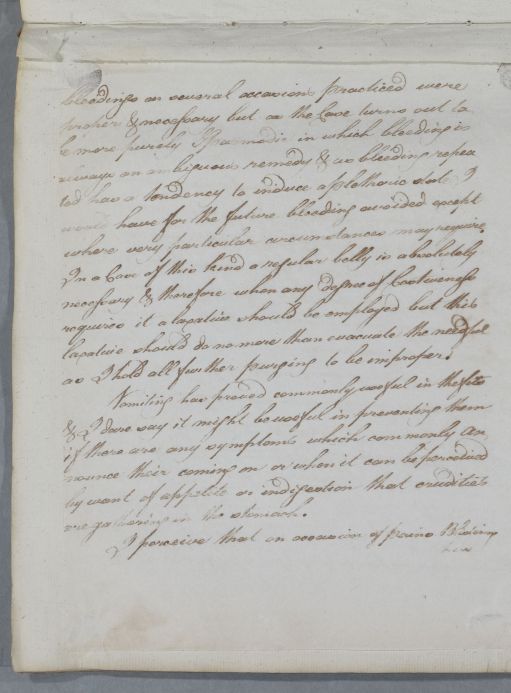 bleedings on several occasions practiced were
proper & necessary but as the Case turns out to
be more purely Spasmodic in which bleeding is
always an ambiguous remedy & as bleeding repea
ted has a tendency to induce a plethoric state I
would have for the future bleeding avoided except
where very particular circumstances may require.
In a Case of this kind a regular belly is absolutely
necessary & therefore when any degree of Costiveness
requires it a laxative should be employed but this
laxative should do no more than evacuate the needful
as I hold all further purging to be improper.
Vomiting has proved commonly useful in the fits
& I dare say it might be useful in preventing them
if there are any symptoms which commonly an
nounce their coming on or when it can be perceived
by want of appetite or indigestion that crudities
are gathering in the stomach.
I perceive that on occasion of pains Blistering
has